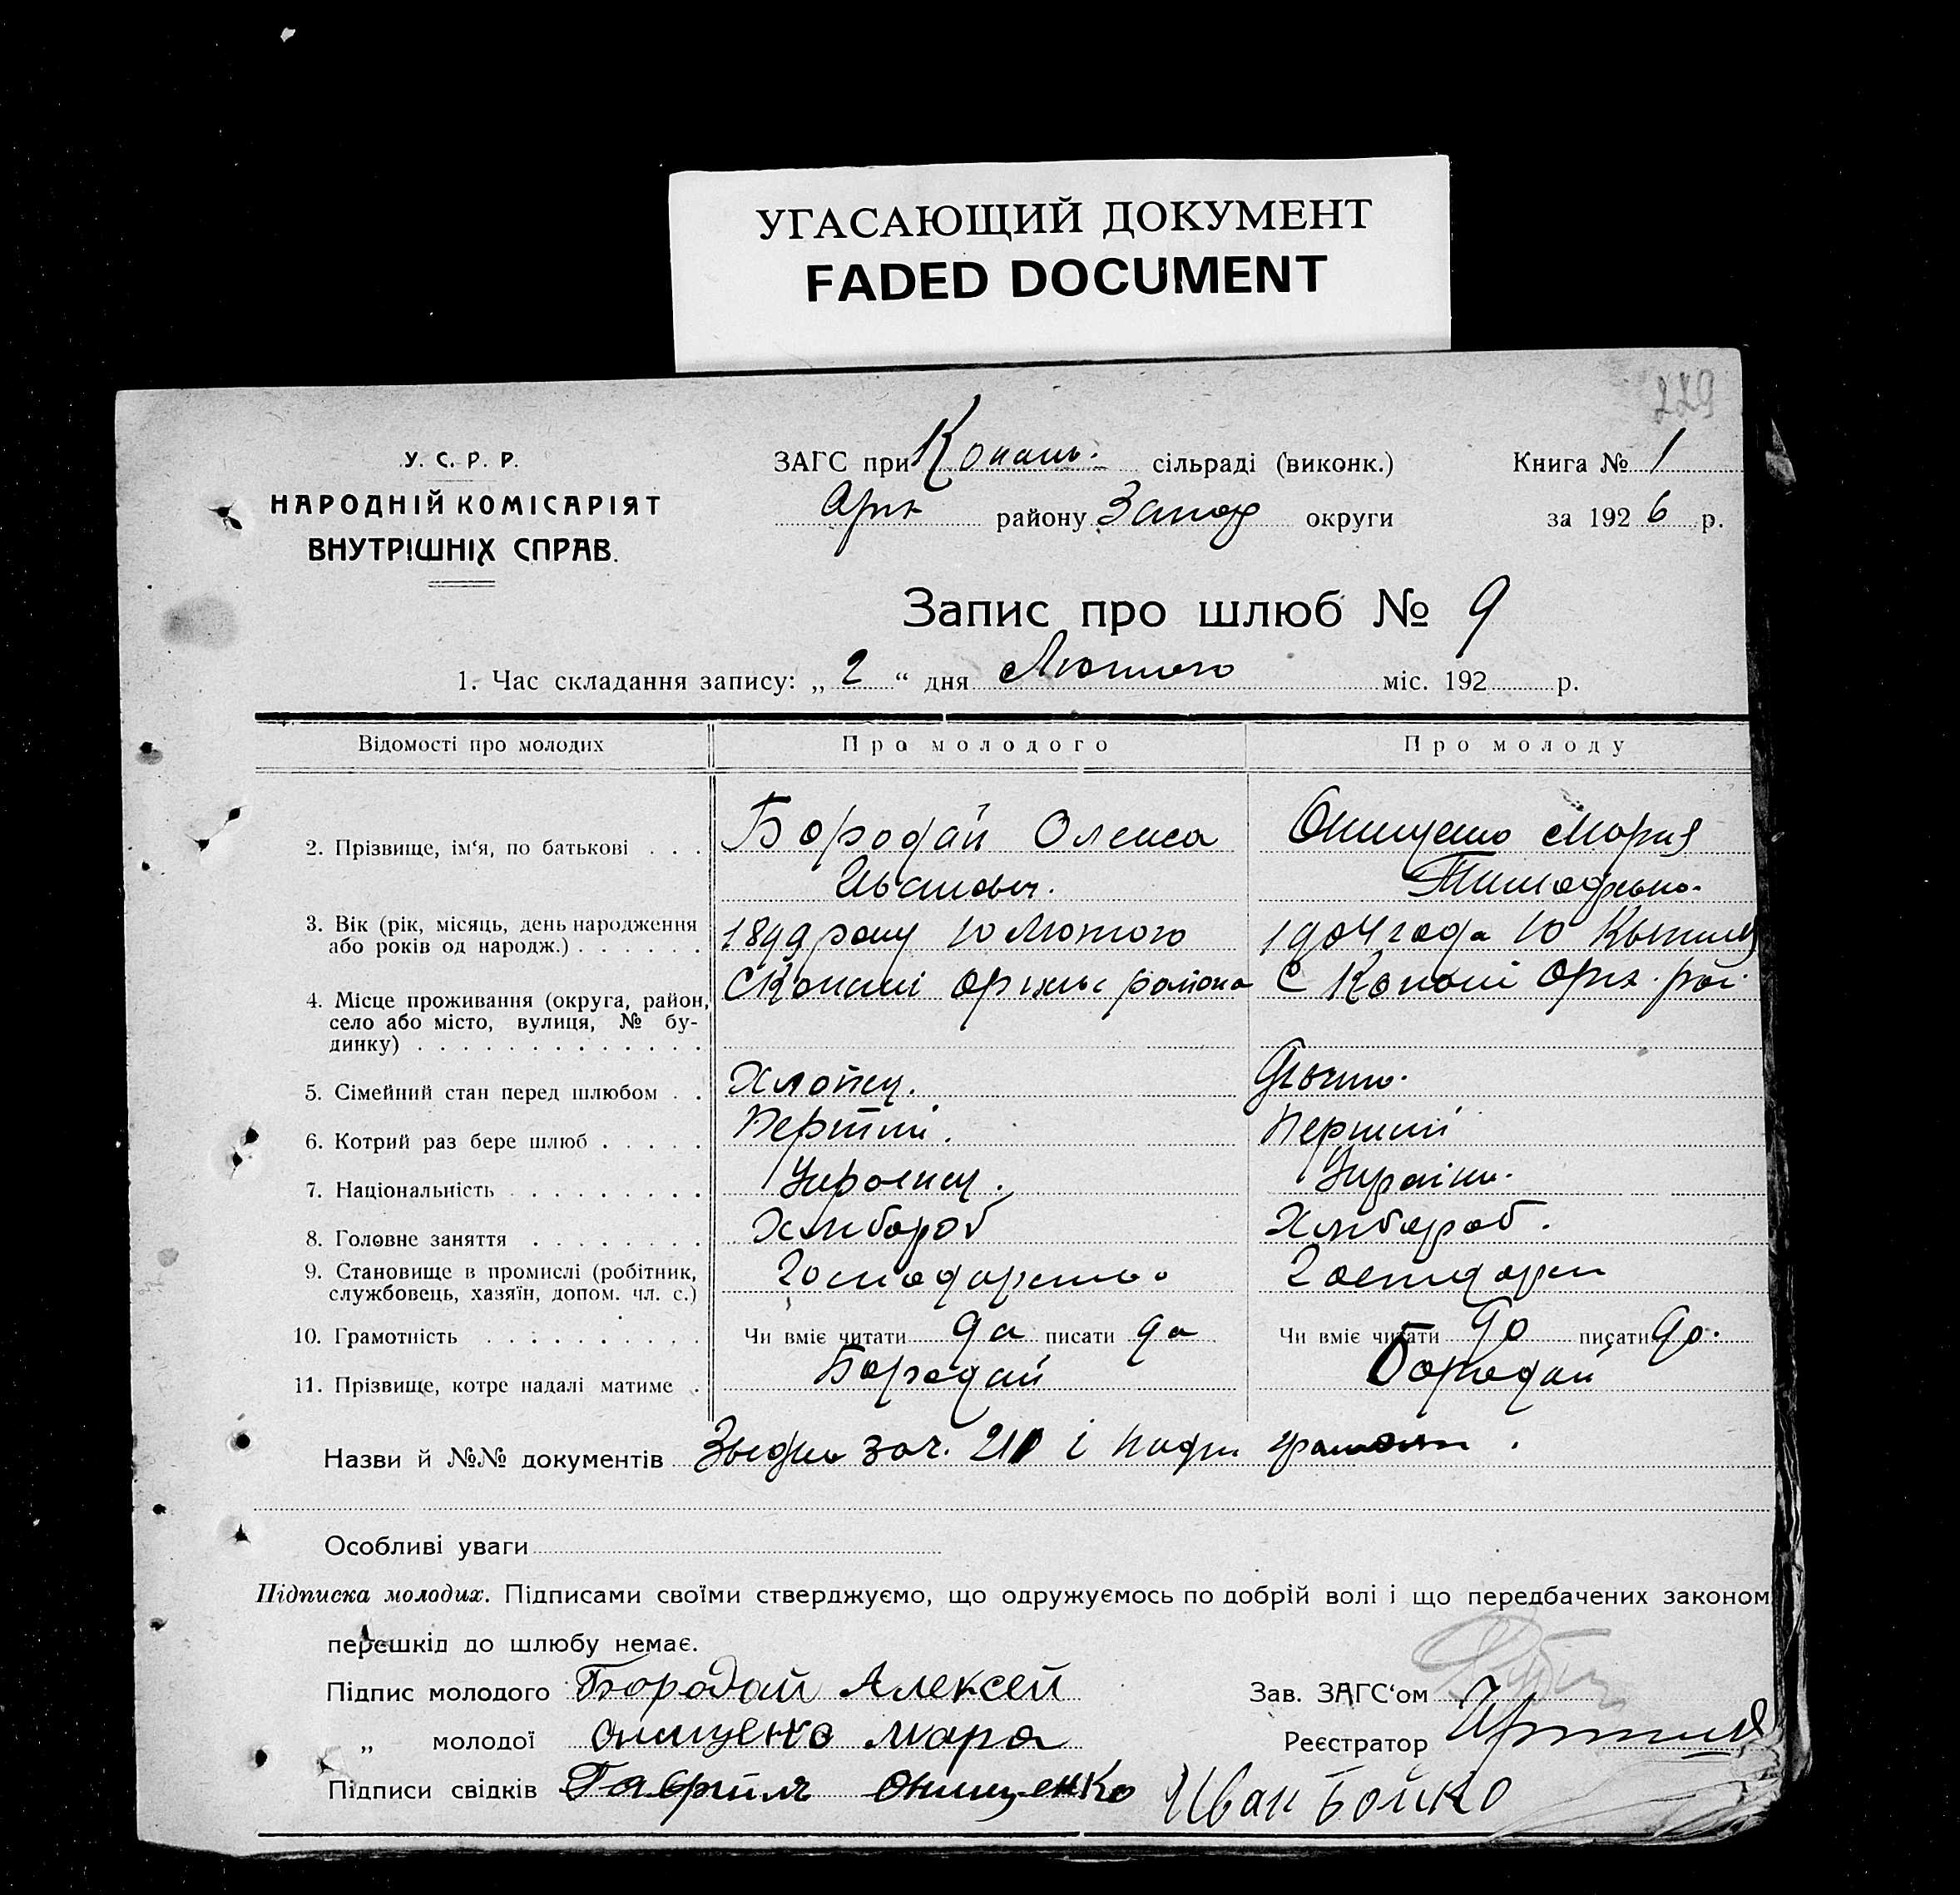 УГАСАЮЩИЙ ДОКУМЕНТ
FADED DOCUMENT
229
У. С. Р. Р.
НАРОДНІЙ КОМІСАРІЯТ
ВНУТРІШНІХ СПРАВ.
ЗАГС при Копань. сільраді (виконк.) Книга № 1
Орж району Запор округи за 1926 р.
Запис про шлюб № 9
1. Час складання запису: „ 2 “ дня Лютого міс. 192 р.
Відомості про молодих Про молодого Про молоду
2. Прізвище, ім‘я, по батькові . . . Бородай Олекса Онищенко Мария
Иванович. Тимофъевно.
3. Вік (рік, місяць, день народження 1899 року 10 Лютого 1904 года 10 Квитня
або років од народж.) . . . . . .
4. Місце проживання (округа, район, С Копані Оржыс района С Копані Орж. рай.
село або місто, вулиця, № бу-
динку) . . . . . . . . . . . . .
5. Сімейний стан перед шлюбом . . Хлопец.
6. Котрий раз бере шлюб . . . . . Перший. Перший
7. Національність . . . . . . . . . Украинец. Українк.
8. Головне заняття . . . . . . . . Хлибороб Хлибороб.
9. Становище в промислі (робітник, Господарство
службовець, хазяїн, допом. чл. с.)
10. Грамотність . . . . . . . . . . Чи вміє читати да писати да Чи вміє читати да писати да.
11. Прізвище, котре надалі матиме . Бородай Бородай
Назви й №№ документів зач. 210 і
Особливі уваги
Підписка молодих. Підписами своїми стверджуємо, що одружуємось по добрій волі і що передбачених законом
перешкід до шлюбу немає.
Підпис молодого Бородай Алексей Зав. ЗАГС‘ом
„ молодої Онищенко Мара Реєстратор
Підписи свідків Гаврилъ Онищенко Иван Бойко